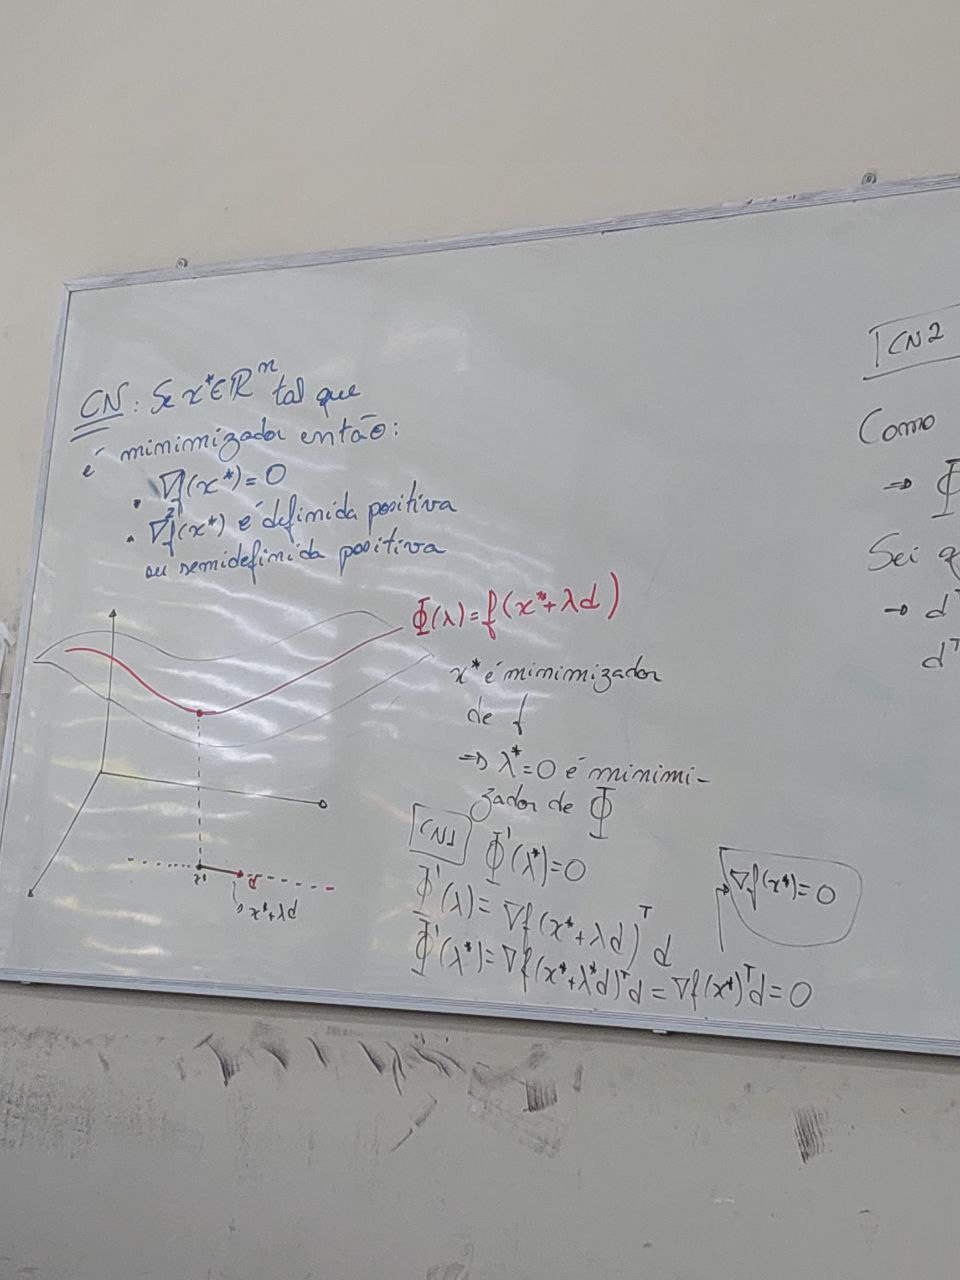 CN: Se x* ∈ ℝⁿ tal que
é minimizador então:
• ∇f(x*) = 0
• ∇²f(x*) é definida positiva
ou semidefinida positiva
Φ(λ) = f(x* + λd)
x* é minimizador
de f
⇒ λ* = 0 é minimi-
zador de Φ
x*
d
x*+λd
CN1 Φ'(λ*) = 0
Φ'(λ) = ∇f(x* + λd)ᵀ d
Φ'(λ*) = ∇f(x* + λ*d)ᵀd = ∇f(x*)ᵀd = 0
∇f(x*) = 0
CN2
Como
⇒ Φ
Sei q
→ dᵀ
dᵀ